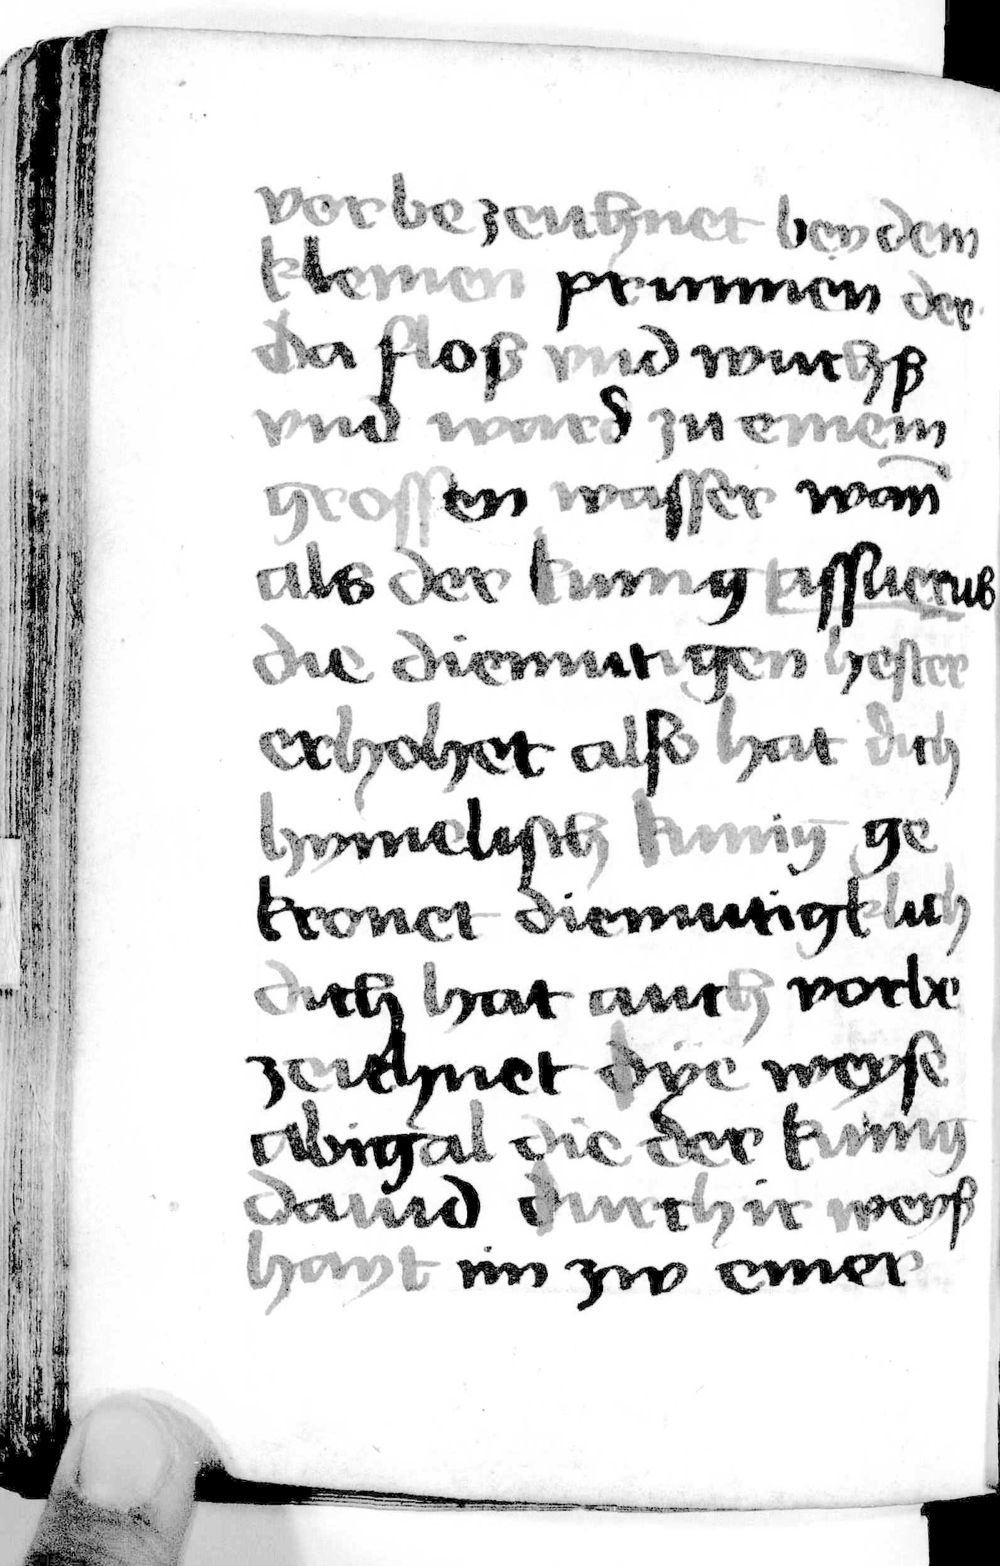 vorbezeichnet bey dem
kleinen prunnen der
da floß vnd wuchß
vnd ward zu einem
grossen wasser wan̄
als der kunig kassuerus
die diemutigen hester
erhohet also hat dich
hymelisch kunig ge
kronet diemutigklich
dich hat auch vorbe
zeichnet dÿe weyse
abigal die der kunig
dauid durch ir weyß
hayt im zw einer